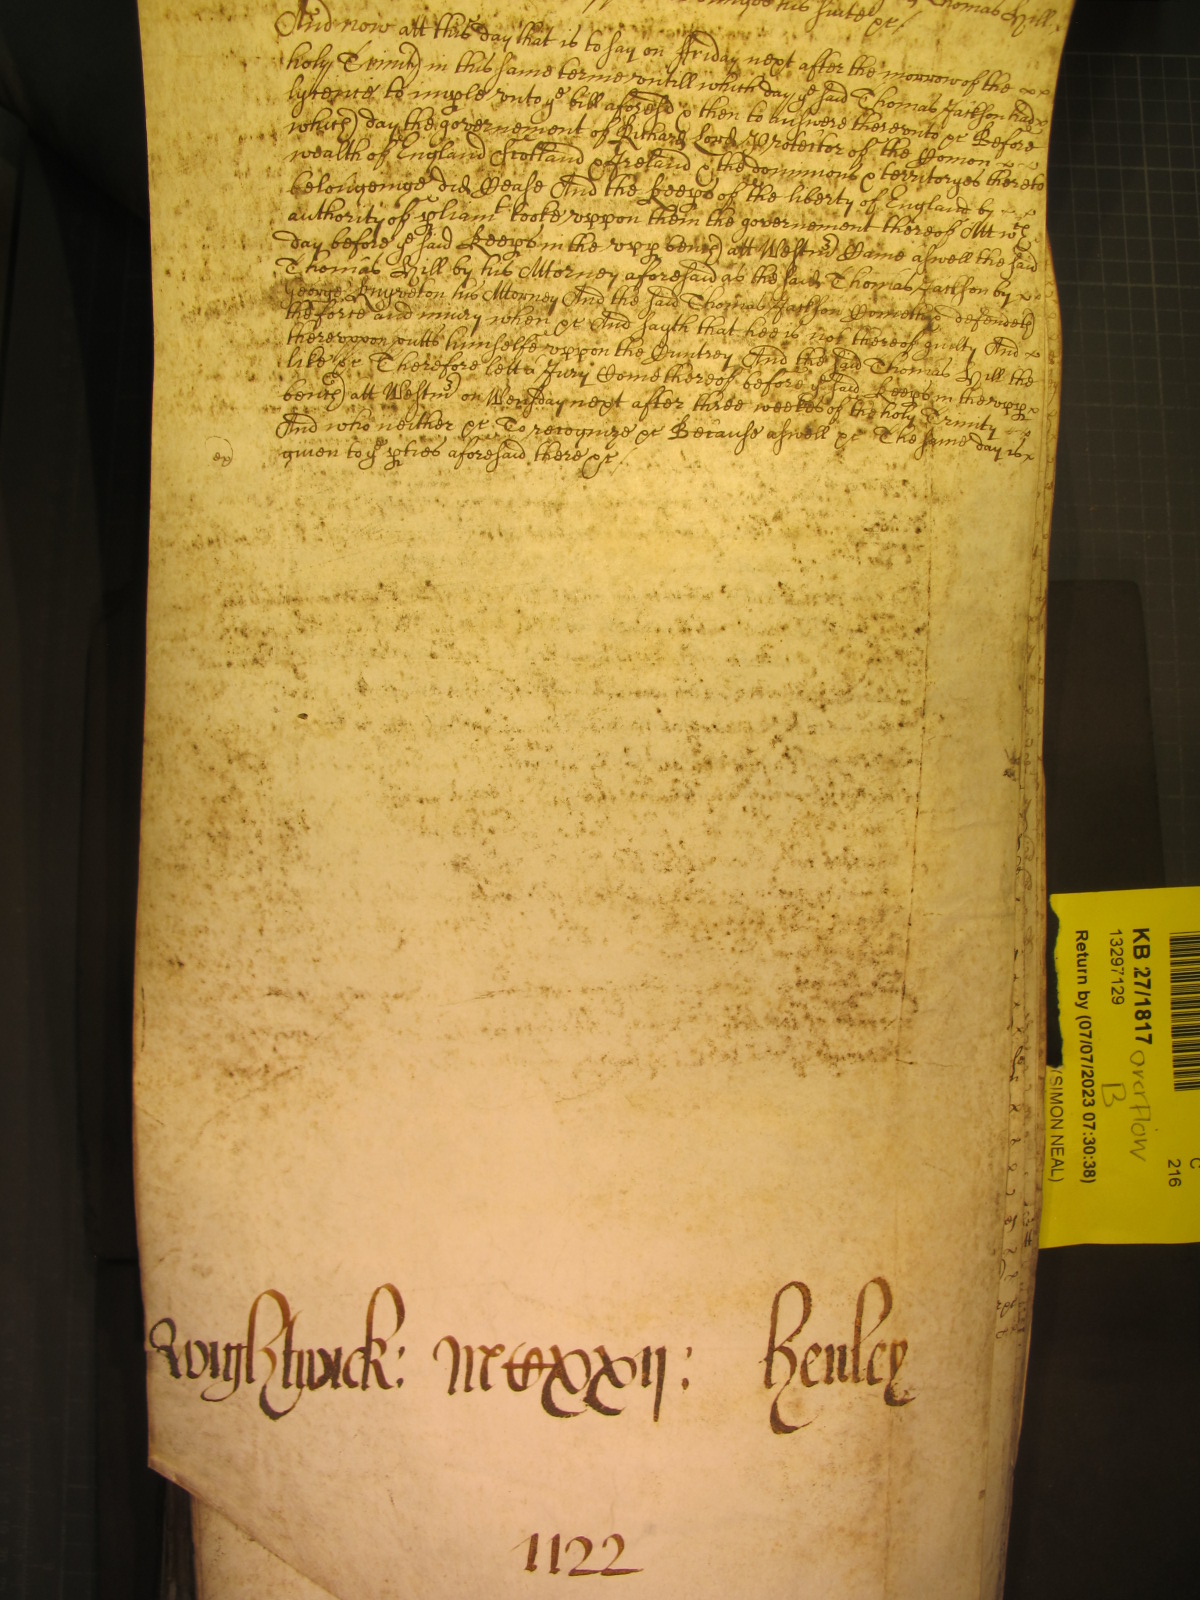 Thomas Hill
his suite &c /
And now att this day that is to say on Friday next after the morrow of the
holy Trinity in this same terme untill which day ye said Thomas Jackson had
lycence to imple unto ye bill aforesd & then to answere thereunto &c Before
which day the governement of Richard Lord Protector of the Comon
wealth of England Scotland & Ireland & the dominions & territoryes thereto
belongeinge did Cease And the keeps of the liberty of England by
authority of pliamt tooke uppon them the governement thereof Att wch
day before ye said keeps in the upp bench att Westmr Came aswell the said
Thomas Hill by his Attorney aforesaid as the said Thomas Jackson by
George Knyveton his Attorney And the said Thomas Jackson Cometh & defendeth
the force and iniury when &c And sayth that hee is not thereof guilty And
thereuppon putts himselfe uppon the Cuntrey And the said Thomas Hill the
like &c Therefore lett a Jury Come thereof before ye said keeps in the upp
bench att Westmr on Wensday next after three weekes of the holy Trinity
And who neither &c To recognize &c Because aswell &c The same day is
given to ye pties aforesaid there &c /
Henley
1122
KB 27/1817 overflow
B
13297129
Return by (07/07/2023 07:30:38)
(SIMON NEAL)
C
216